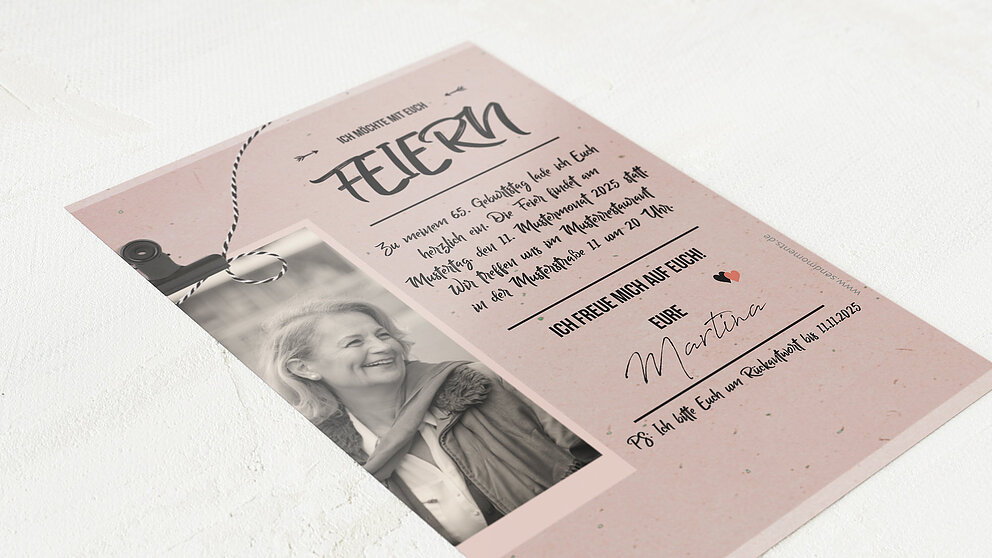 ICH MÖCHTE MIT EUCH
FEIERN
Zu meinem 65. Geburtstag lade ich Euch
herzlich ein. Die Feier findet am
Mustertag, den 11. Mustermonat 2025 statt.
Wir treffen uns im Musterrestaurant
in der Musterstraße 11 um 20 Uhr.
ICH FREUE MICH AUF EUCH!
EURE
Martina
PS: Ich bitte Euch um Rückantwort bis 11.11.2025
www.sendmoments.de